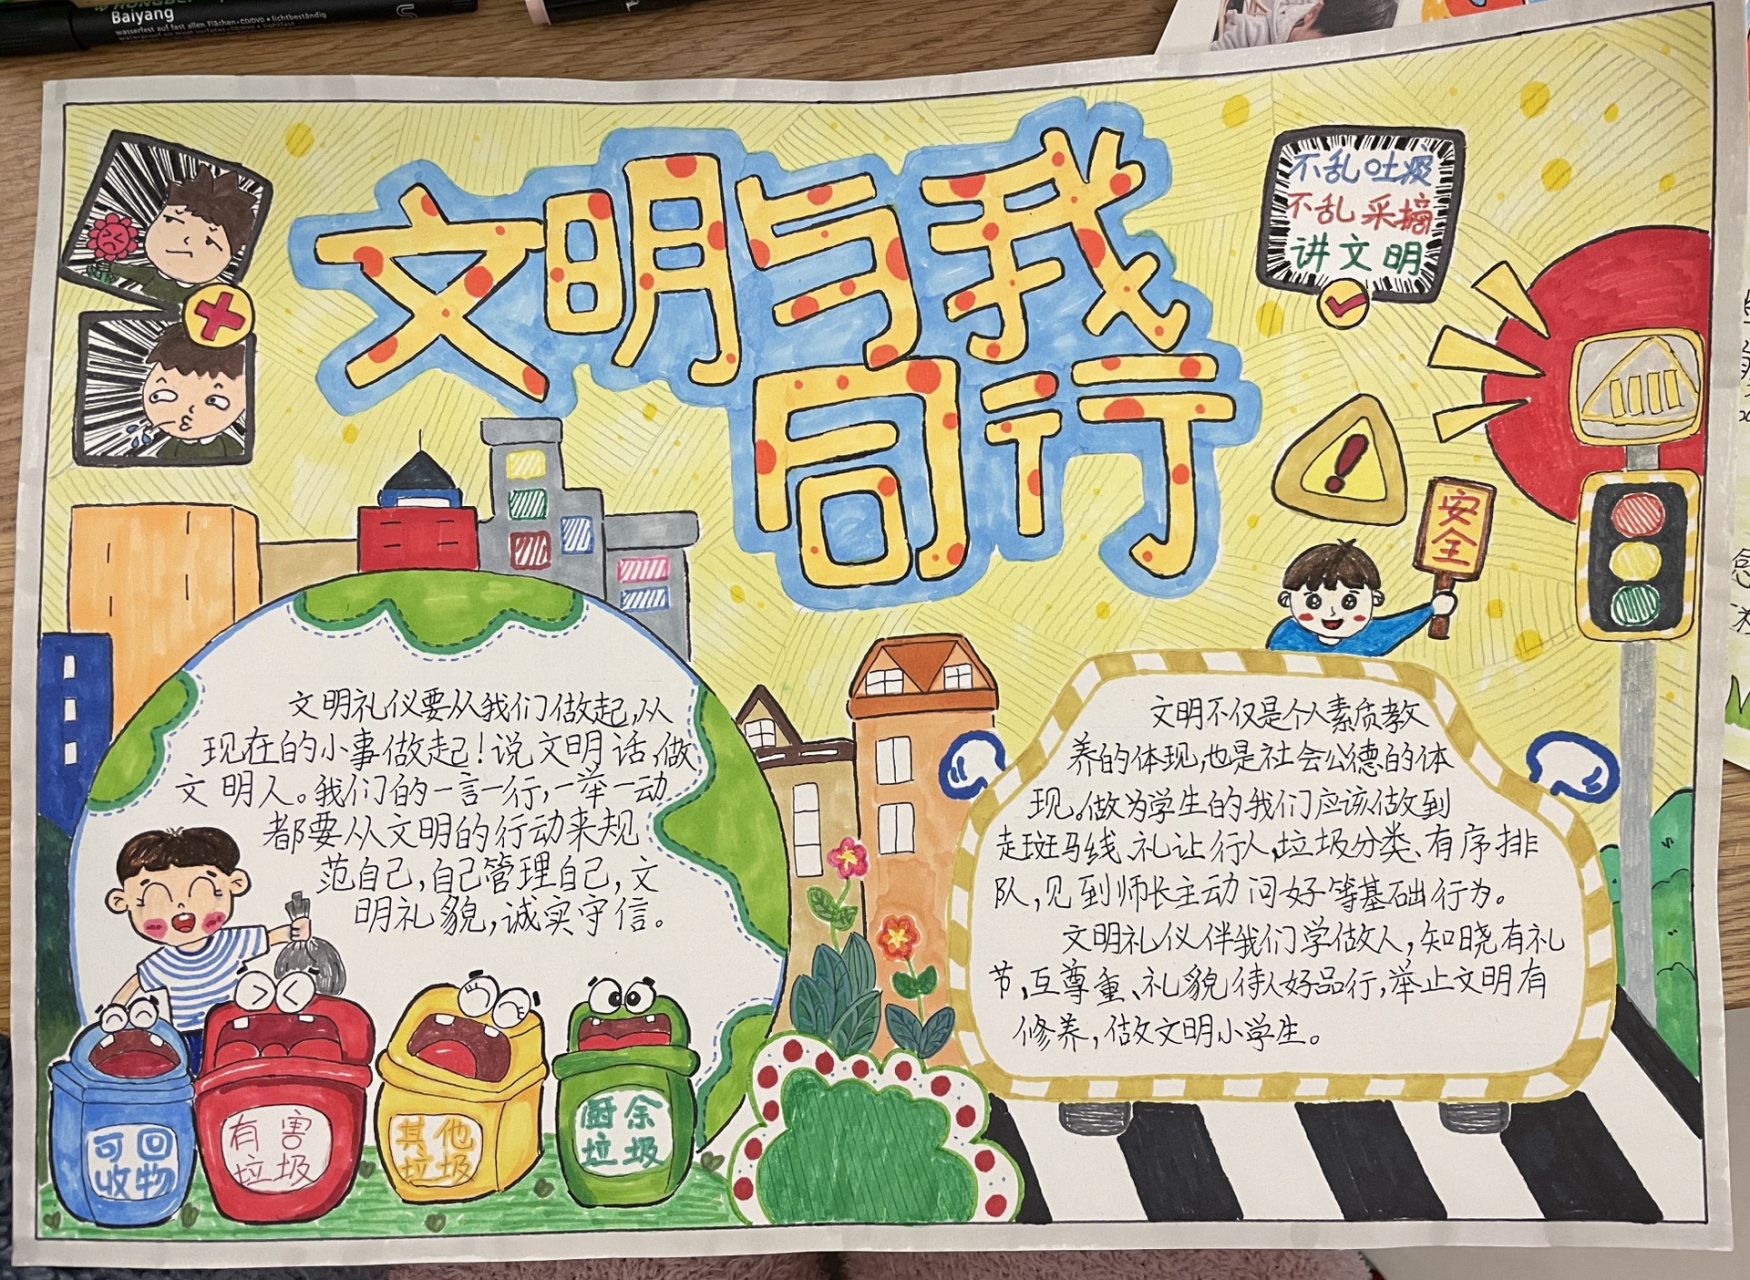 Baiyang
wasserfest auf fast allen Flächen
lichtbeständig
文明与我
同行
不乱吐痰
不乱采摘
讲文明
安
全
文明礼仪要从我们做起,从
现在的小事做起!说文明话,做
文明人。我们的一言一行,一举一动
都要从文明的行动来规
范自己,自己管理自己,文
明礼貌,诚实守信。
文明不仅是个人素质教
养的体现,也是社会公德的体
现。做为学生的我们应该做到
走斑马线、礼让行人、垃圾分类、有序排
队,见到师长主动问好等基础行为。
文明礼仪伴我们学做人,知晓有礼
节,互尊重、礼貌待人好品行,举止文明有
修养,做文明小学生。
可回
收物
有害
垃圾
其他
垃圾
厨余
垃圾